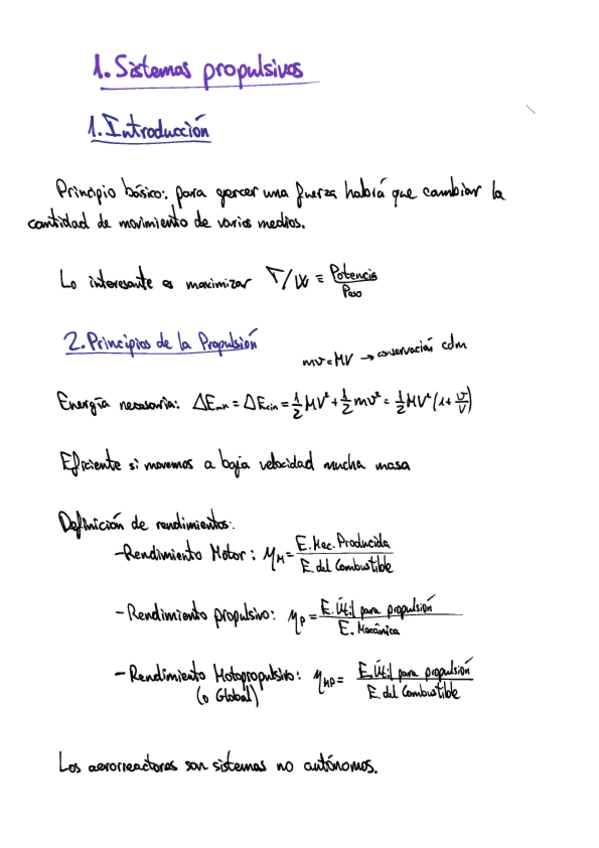 1. Sistemas propulsivos
1. Introducción
Principio básico: para ejercer una fuerza habrá que cambiar la
cantidad de movimiento de varios medios.
Lo interesante es maximizar T/W ≡ Potencia/Peso
2. Principios de la Propulsión
mv=MV → conservación cdm
Energía necesaria: ΔEmín = ΔEcin = 1/2 MV² + 1/2 mv² = 1/2 MV² (1+ v/V)
Eficiente si movemos a baja velocidad mucha masa
Definición de rendimientos:
-Rendimiento Motor: ηM = E. Mec. Producida / E. del Combustible
- Rendimiento propulsivo: ηP = E. Útil para propulsión / E. Mecánica
- Rendimiento Motopropulsivo: ηMP = E. Útil para propulsión / E. del Combustible
(o Global)
Los aerorreactores son sistemas no autónomos.